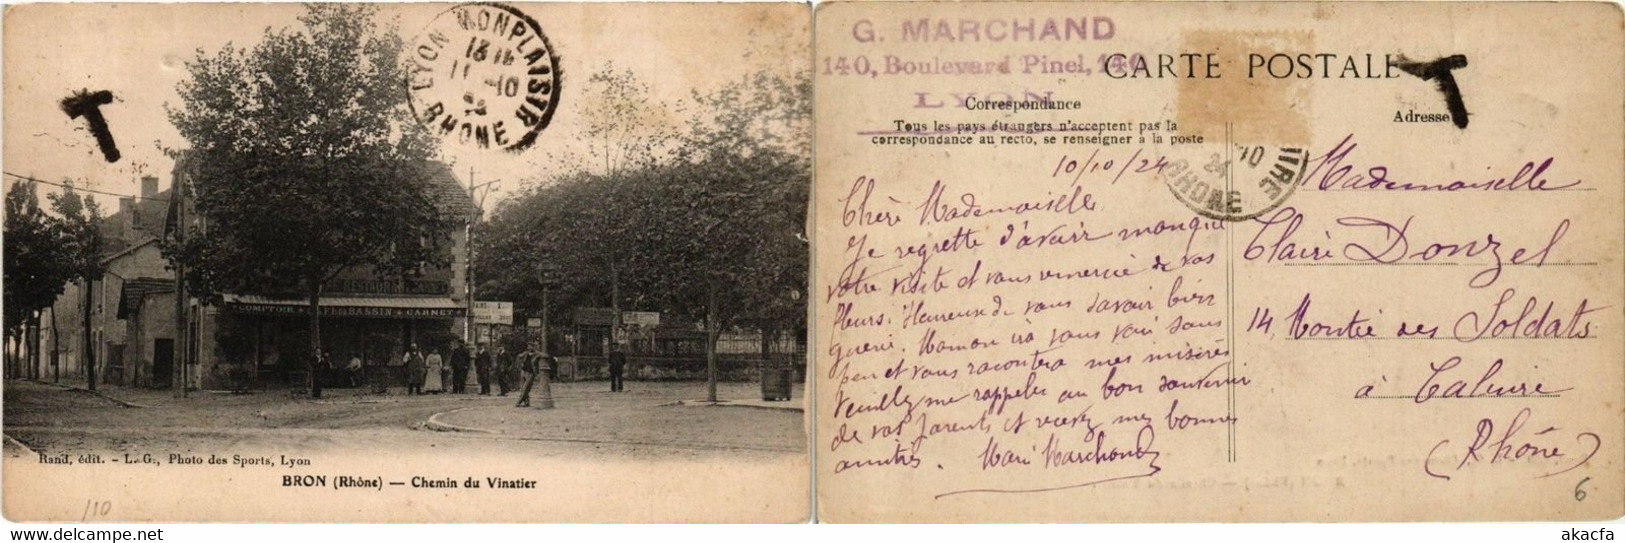 LYON MONPLAISIR
11 -10
RHONE
T
RESTAURANT
COMPTOIR
BASSIN + CARNET
Rand, édit. - L. G., Photo des Sports, Lyon
BRON (Rhône) — Chemin du Vinatier
/10
G. MARCHAND
140, Boulevard Pinel, 140
LYON
CARTE POSTALE
T
Correspondance
Tous les pays étrangers n'acceptent pas la
correspondance au recto, se renseigner à la poste
Adresse
10
24
RHONE
UIRE
10/10/24
Chère Mademoiselle
Je regrette d'avoir manqué
votre visite et vous remercie de vos
fleurs. Heureuse de vous savoir bien
guérie. Maman ira vous voir sous
peu et vous racontera mes misères
Veuillez me rappeler au bon souvenir
de vos parents et recevez mes bonnes
amitiés. Marie Marchand
Mademoiselle
Claire Donzel
14, Montée des Soldats
à Caluire
(Rhône)
6
akacfa